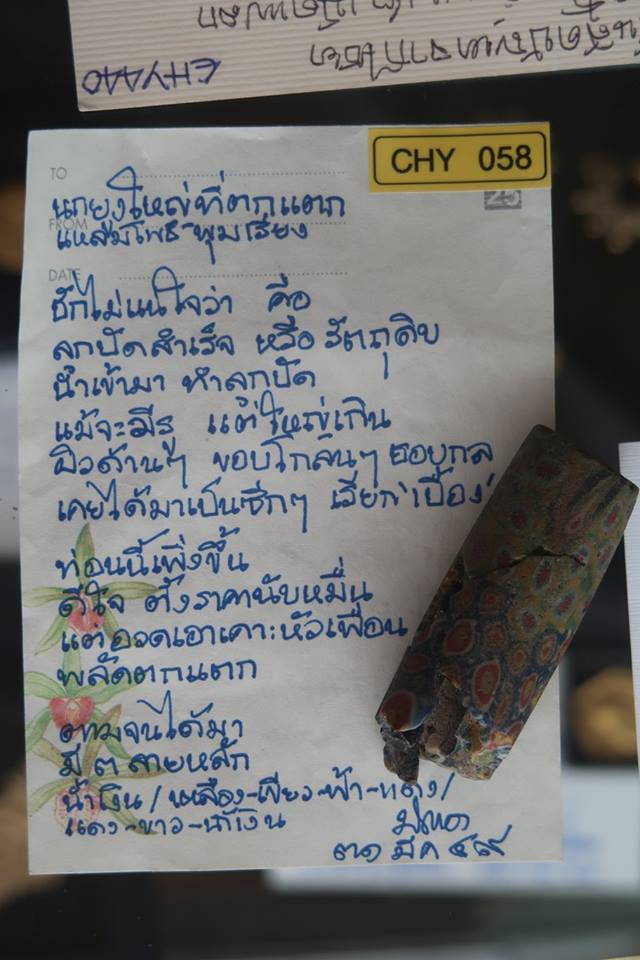 CHY440
TO
CHY 058
25
นกยูงใหญ่ที่ตกแตก
FROM
แหลมโพธิ์ พุมเรียง
DATE
ชักไม่แน่ใจว่า คือ
ลูกปัดสำเร็จ หรือ วัตถุดิบ
นำเข้ามา ทำลูกปัด
แม้จะมีรู แต่ใหญ่เกิน
ผิวด้านๆ ขอบโกลนๆ
เคยได้มาเป็นซีกๆ เรียก 'เบื้อง'
ท่อนนี้เพิ่งขึ้น
ดีใจ ตั้งราคานับหมื่น
แต่อวดเอาเคาะหัวเพื่อน
พลัดตกแตก
ตามจนได้มา
มี ๓ ลายหลัก
น้ำเงิน/เหลือง-เขียว-ฟ้า-แดง/
แดง-ขาว-น้ำเงิน
๓๑ มีค ๔๙